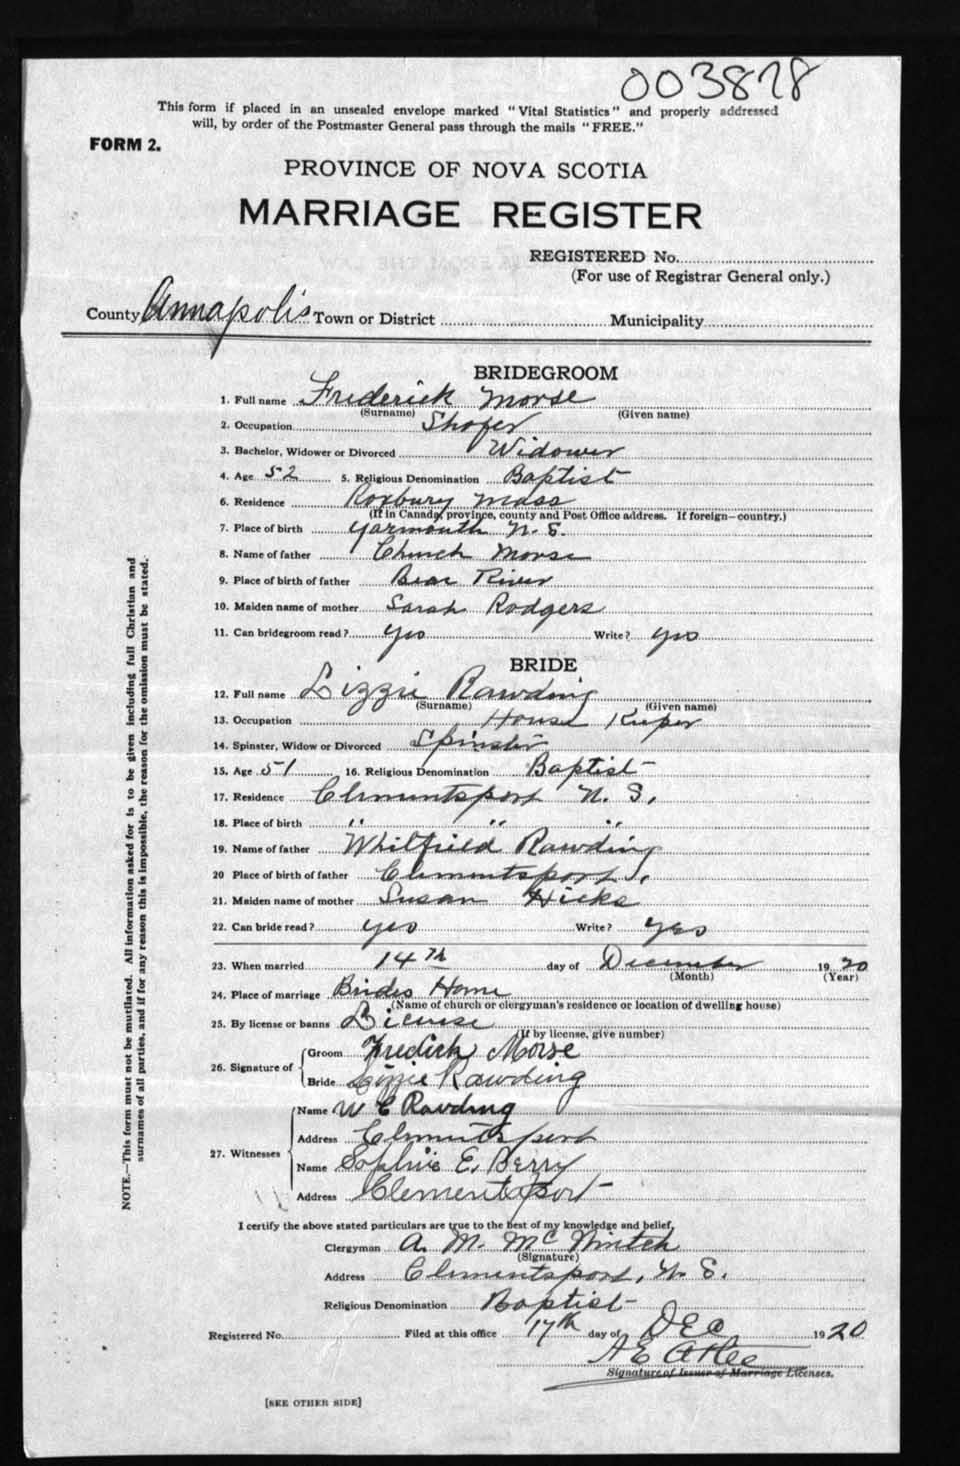 003878
This form if placed in an unsealed envelope marked "Vital Statistics" and properly addressed
will, by order of the Postmaster General pass through the mails "FREE."
FORM 2.
PROVINCE OF NOVA SCOTIA
MARRIAGE REGISTER
REGISTERED No.
(For use of Registrar General only.)
County Annapolis Town or District Municipality
BRIDEGROOM
1. Full name Frederick Morse
(Surname) (Given name)
2. Occupation Shofer
3. Bachelor, Widower or Divorced Widower
4. Age 52 5. Religious Denomination Baptist
6. Residence Roxbury Mass
(If in Canada, province, county and Post Office address. If foreign—country.)
7. Place of birth Yarmouth N. S.
8. Name of father Church Morse
9. Place of birth of father Bear River
10. Maiden name of mother Sarah Rodgers
11. Can bridegroom read? yes Write? yes
BRIDE
12. Full name Lizzie Rawding
(Surname) (Given name)
13. Occupation House Keeper
14. Spinster, Widow or Divorced Spinster
15. Age 51 16. Religious Denomination Baptist
17. Residence Clementsport N. S.
18. Place of birth " " "
19. Name of father Whilfield Rawding
20 Place of birth of father Clementsport
21. Maiden name of mother Susan Hicks
22. Can bride read? yes Write? yes
23. When married 14th day of December 1920
(Month) (Year)
24. Place of marriage Brides Home
(Name of church or clergyman's residence or location of dwelling house)
25. By license or banns License
(If by license, give number)
26. Signature of Groom Fredick Morse
Bride Lizzie Rawding
27. Witnesses Name W E Rawding
Address Clementsport
Name Sophie E. Berry
Address Clementsport
I certify the above stated particulars are true to the best of my knowledge and belief.
Clergyman A. M. McNintch
(Signature)
Address Clementsport, N. S.
Religious Denomination Baptist
Registered No. Filed at this office 17th day of DEC 1920
A E Atlee
Signature of Issuer of Marriage Licenses.
[SEE OTHER SIDE]
NOTE.—This form must not be mutilated. All information asked for is to be given including full Christian and
surnames of all parties, and if for any reason this is impossible, the reason for the omission must be stated.